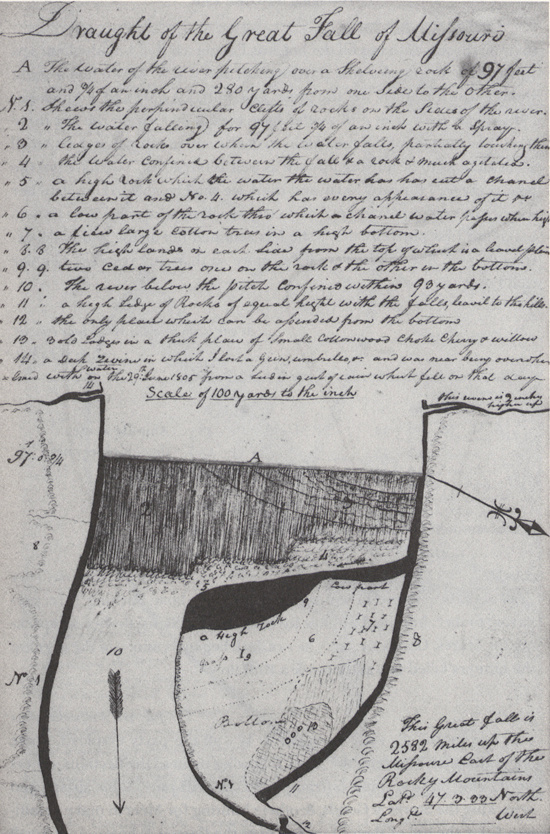 Draught of the Great Fall of Missouri
A The water of the river pitching over a Shelveing rock of 97 feet
and ¾ of an inch and 280 yards from one Side to the other.
No. 1. Shews the perpendicular Clifts of rocks on the Sides of the river.
" 2 " The water falling for 97 feet ¾ of an inch with a Spray.
" 3 " Ledges of rocks over which the water falls, partially touching them
" 4 " the water confined between the fall & a rock & much agitated.
" 5 " a high rock which the water the water has has cut a chanel
between it and No. 4. which has every appearance of it &c
" 6 " a low part of the rock thro' which a chanel water passes when high
" 7 " a fiew large Cotton trees in a high bottom.
" 8. 8 The high lands on each Side from the top of which is a level plain
" 9. 9. two Cedar trees one on the rock & the other in the bottom.
" 10. The river below the pitch Confined within 93 yards.
" 11 " a high Ledge of Rocks of equal height with the falls, leavil to the hills
" 12 the only place which can be assended from the bottom
" 13 " Lodges in a thick place of Small Cottonwood Choke Chery & willow
" 14. a Deep revine in which I lost a Gun, umbrella, &c and was near being
with water on the 29th June 1805 from a of rain which fell on that day
Scale of 100 yards to the inch
14
this revine is
higher up
97. 0 ¾
A
2
3
8
4
5
Low part
a High rock
9
6
7
8
9
10
No. 1
Bottom
13
No. 1
11
12
This Great fall is
2582 miles up the
Missouri East of the
Rocky Mountains
Latd. 47. 3. North
Longd. West